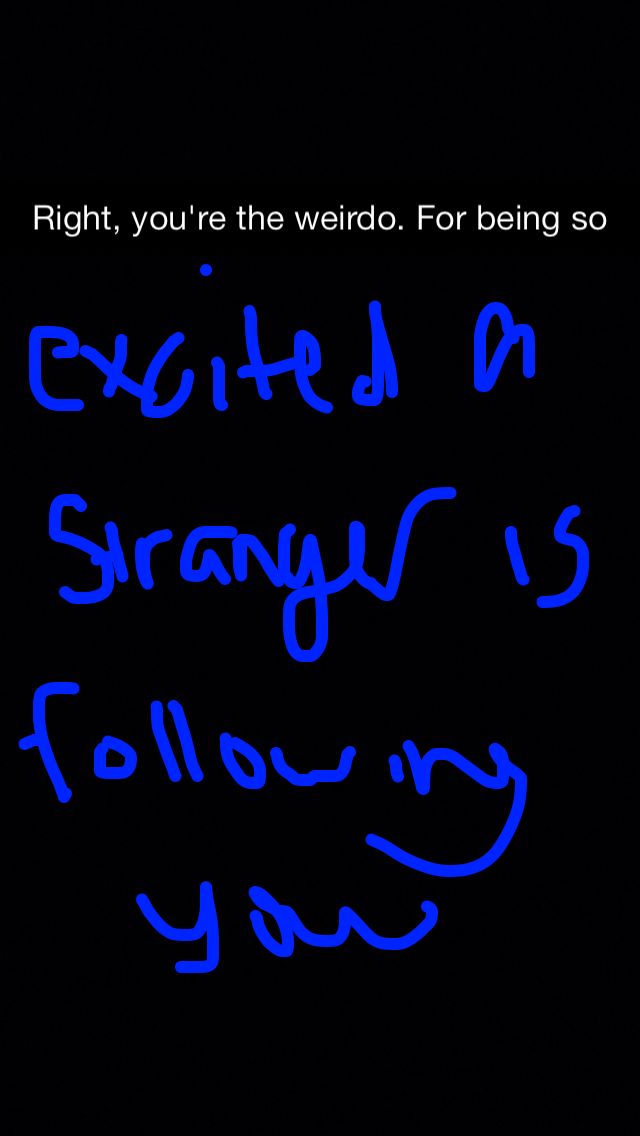 Right, you're the weirdo. For being so
excited a
stranger is
following
you